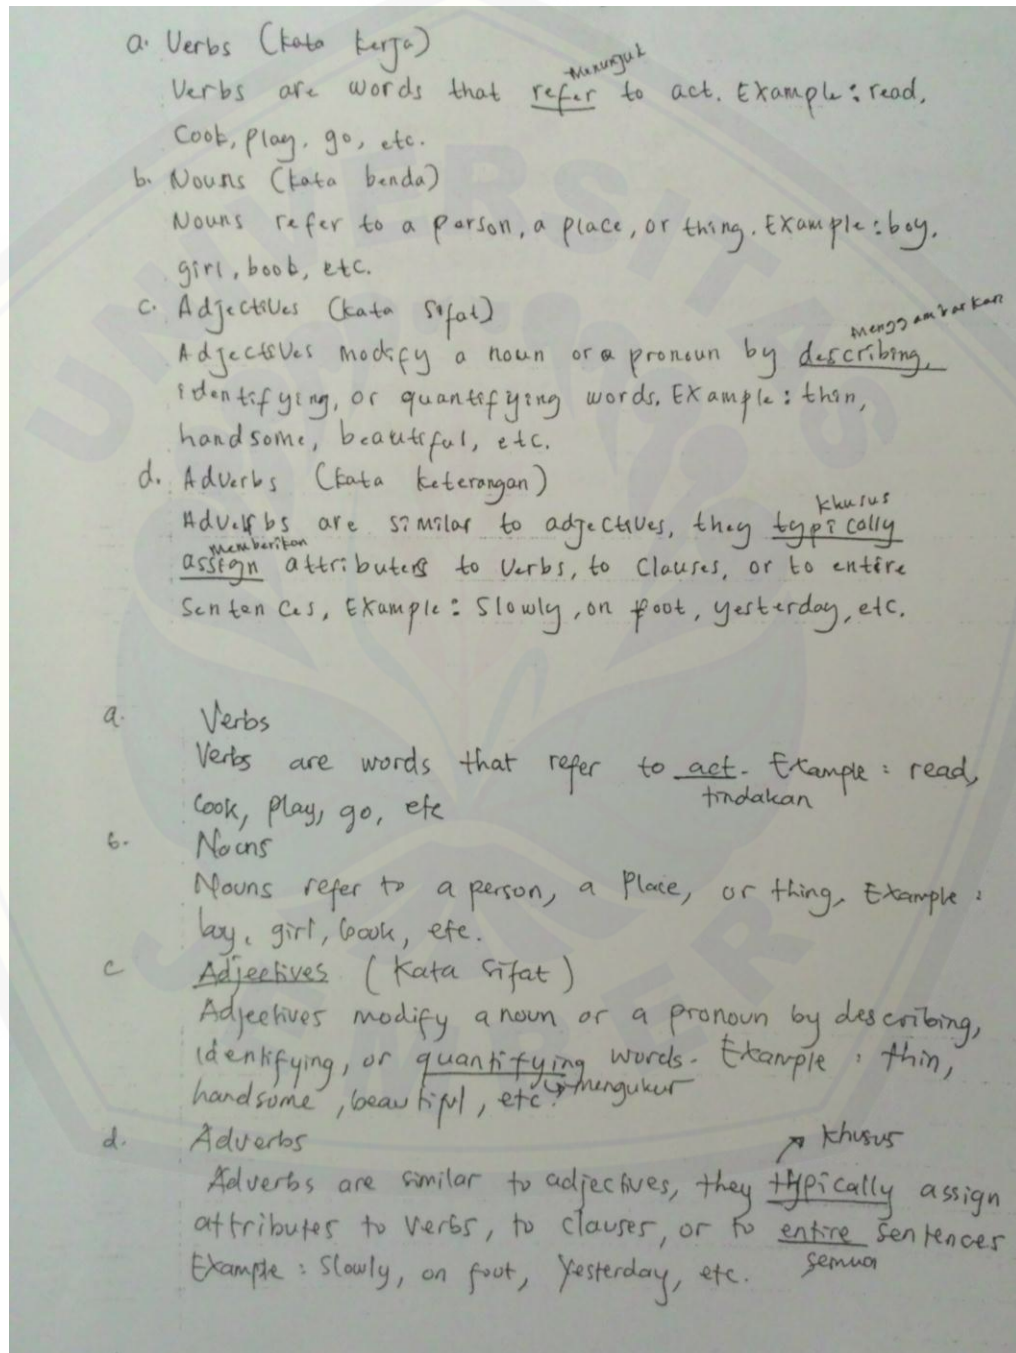 a. Verbs (kata kerja)
Menunjuk
Verbs are words that refer to act. Example: read,
Cook, play, go, etc.
b. Nouns (kata benda)
Nouns refer to a person, a place, or thing. Example: boy,
girl, book, etc.
c. Adjectives (kata sifat)
menggambarkan
Adjectives modify a noun or a pronoun by describing,
identifying, or quantifying words. Example: thin,
handsome, beautiful, etc.
d. Adverbs (kata keterangan)
khusus
Adverbs are similar to adjectives, they typically
memberikan
assign attributes to verbs, to clauses, or to entire
Sentences, Example: Slowly, on foot, yesterday, etc.
a. Verbs
Verbs are words that refer to act. Example: read,
tindakan
Cook, play, go, etc
b. Nouns
Nouns refer to a person, a place, or thing, Example:
boy, girl, book, etc.
c Adjectives (Kata sifat)
Adjectives modify a noun or a pronoun by describing,
identifying, or quantifying words. Example: thin,
mengukur
handsome, beautiful, etc.
d. Adverbs
khusus
Adverbs are similar to adjectives, they typically assign
attributes to verbs, to clauses, or to entire sentences
semua
Example: Slowly, on foot, Yesterday, etc.
UNIVERSITAS
JEMBER